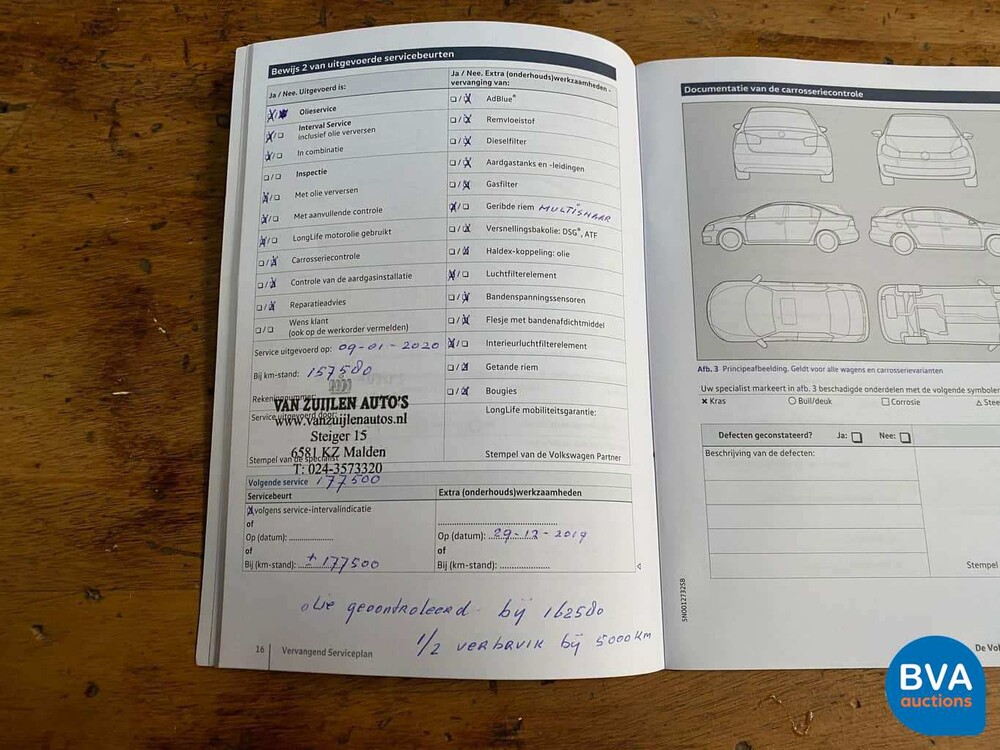 Bewijs 2 van uitgevoerde servicebeurten
Ja / Nee. Uitgevoerd is:
Olieservice
Interval Service
inclusief olie verversen
In combinatie
Inspectie
Met olie verversen
Met aanvullende controle
LongLife motorolie gebruikt
Carrosseriecontrole
Controle van de aardgasinstallatie
Reparatieadvies
Wens klant
(ook op de werkorder vermelden)
Service uitgevoerd op: 09-01-2020
Bij km-stand: 157580
Rekeningnummer:
VAN ZUIJLEN AUTO'S
www.vanzuijlenautos.nl
Service uitgevoerd door:
Steiger 15
6581 KZ Malden
Stempel van de specialist
T: 024-3573320
Ja / Nee. Extra (onderhouds)werkzaamheden -
vervanging van:
AdBlue®
Remvloeistof
Dieselfilter
Aardgastanks en -leidingen
Gasfilter
Geribde riem MULTISNAAR
Versnellingsbakolie: DSG®, ATF
Haldex-koppeling: olie
Luchtfilterelement
Bandenspanningssensoren
Flesje met bandenafdichtmiddel
Interieurluchtfilterelement
Getande riem
Bougies
LongLife mobiliteitsgarantie:
Stempel van de Volkswagen Partner
Volgende service 177500
Servicebeurt
volgens service-intervalindicatie
of
Op (datum): ................
of
Bij (km-stand): ± 177500
Extra (onderhouds)werkzaamheden
Op (datum): 29-12-2019
of
Bij (km-stand): ................
olie gecontroleerd bij 162580
1/2 verbruik bij 5000 km
16 Vervangend Serviceplan
Documentatie van de carrosseriecontrole
Afb. 3 Principeafbeelding. Geldt voor alle wagens en carrosserievarianten
Uw specialist markeert in afb. 3 beschadigde onderdelen met de volgende symbolen
Kras Buil/deuk Corrosie Stee
Defecten geconstateerd? Ja: Nee:
Beschrijving van de defecten:
Stempel
5N0012732SB
De Vol
BVA
auctions